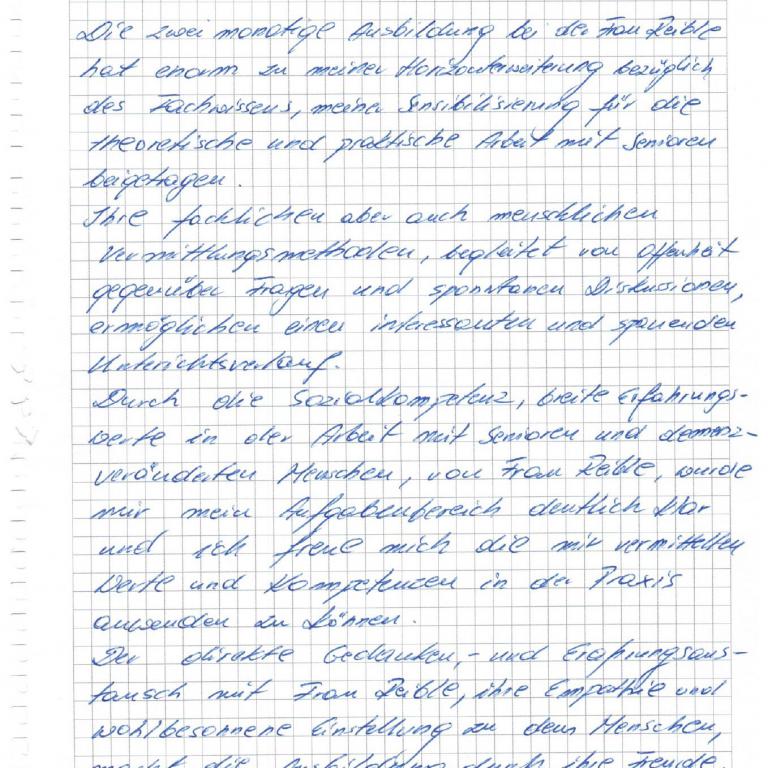 Die zwei monatige Ausbildung bei der Frau Reible
hat enorm zu meiner Horizonterweiterung bezüglich
des Fachwissens, meiner Sensibilisierung für die
theoretische und praktische Arbeit mit Senioren
beigetragen.
Ihre fachlichen aber auch menschlichen
Vermittlungsmethoden, begleitet von Offenheit
gegenüber Fragen und spontanen Diskussionen,
ermöglichen einen interessanten und spanenden
Unterichtsverlauf.
Durch die Sozialkompetenz, breite Erfahrungs-
werte in der Arbeit mit Senioren und demenz-
veränderten Menschen, von Frau Reible, wurde
mir mein Aufgabenbereich deutlich klar
und ich freue mich die mir vermittelten
Werte und Kompetenzen in der Praxis
anwenden zu können.
Der direkte Gedanken,- und Erfahrungsaus-
tausch mit Frau Reible, ihre Empathie und
wohlbesonnene Einstellung zu dem Menschen,
macht die Ausbildung durch ihre Freude